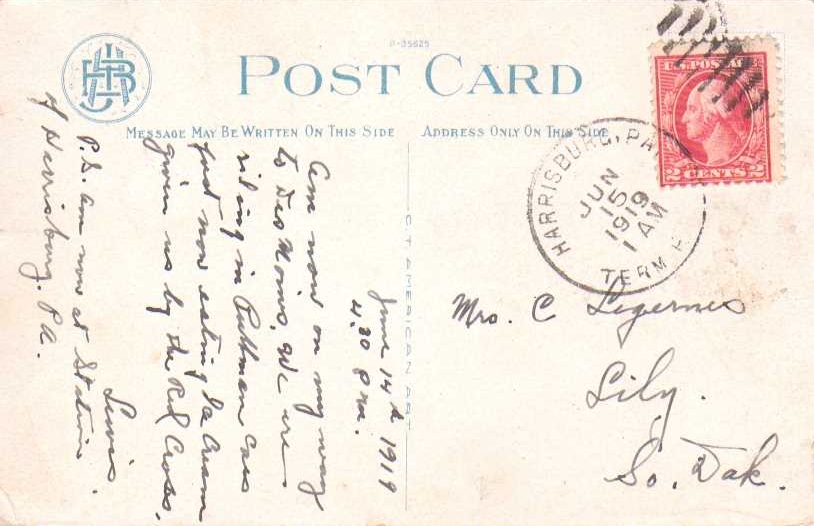 R-35625
POST CARD
MESSAGE MAY BE WRITTEN ON THIS SIDE
ADDRESS ONLY ON THIS SIDE
U.S. POSTAGE
2 CENTS 2
HARRISBURG, PA
JUN
15
1919
1 AM
TERM
C.T. AMERICAN ART
June 14th 1919
4.30 P m.
Am now on my way
to Des Moines. We are
riding in Pullman cars
Just now eating Ice Cream
given us by the Red Cross.
Lewis.
P.S. am now at Station
of Harrisburg. Pa.
Mrs. C Legernes
Lily.
So. Dak.